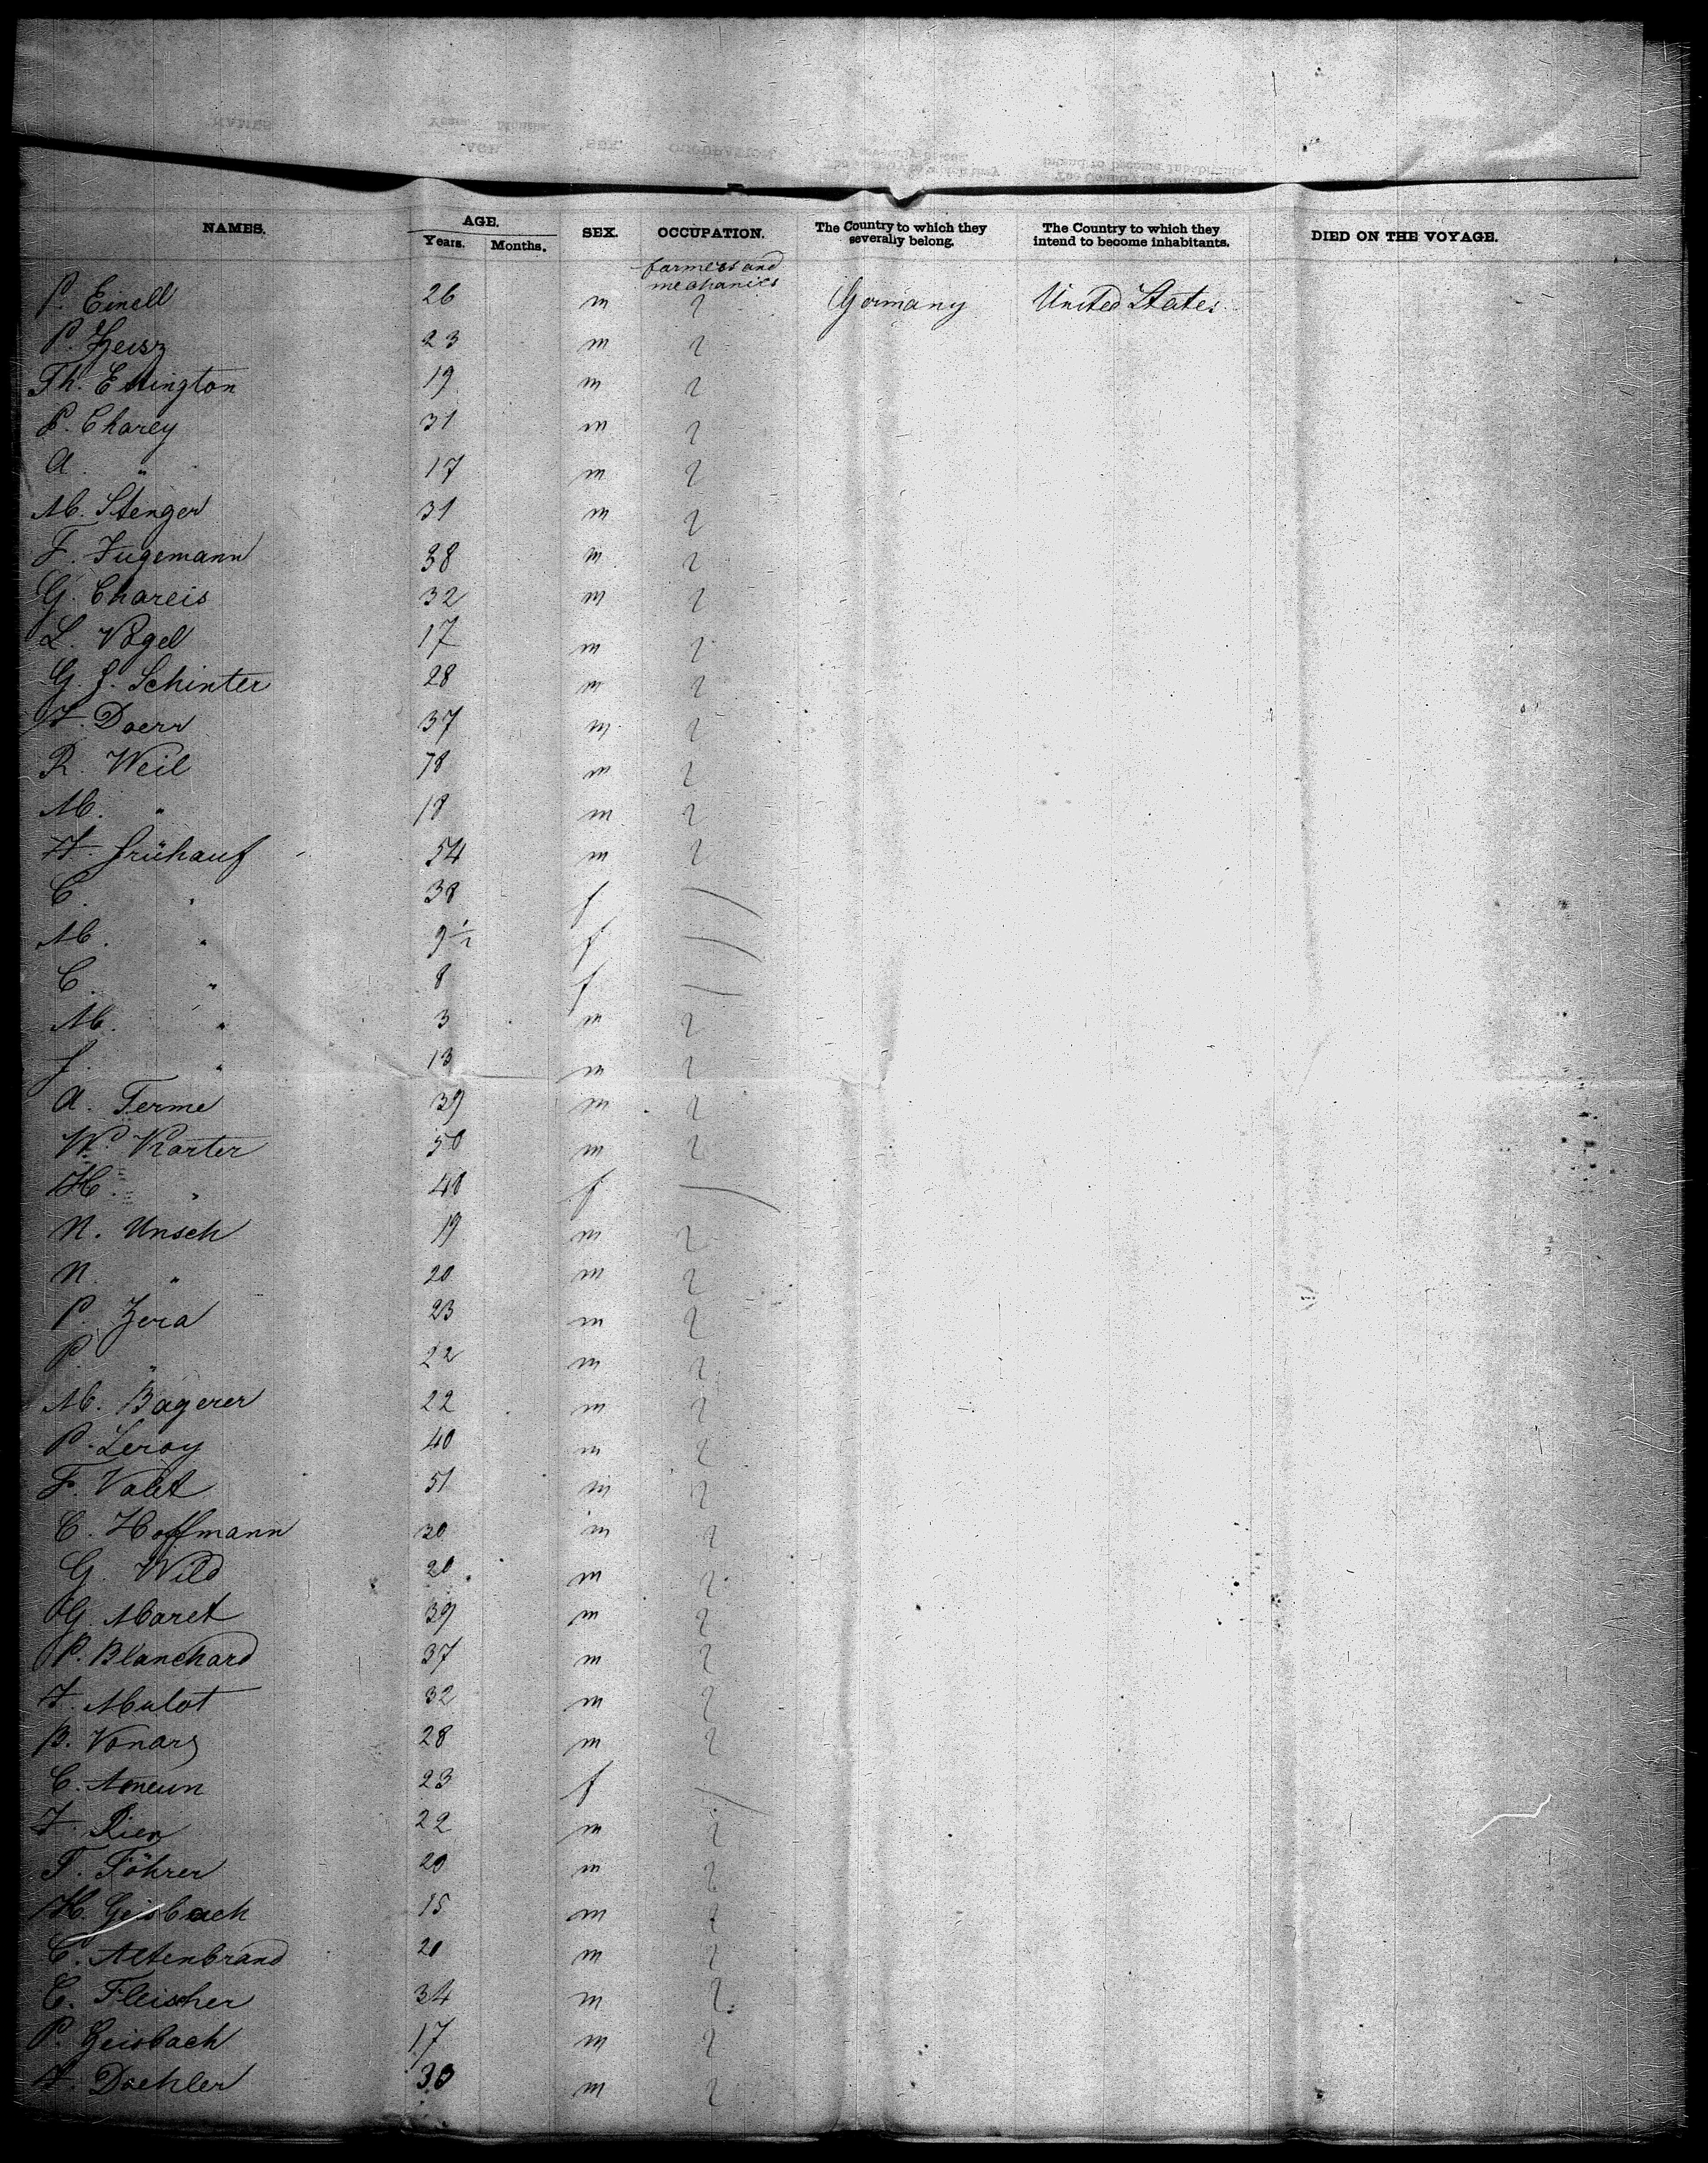 NAMES. AGE. SEX. OCCUPATION. The Country to which they severally belong. The Country to which they intend to become inhabitants. DIED ON THE VOYAGE.
Years. Months.
farmers and
mechanics
P. Einell 26 m " Germany United States
P. Zeisz 23 m "
Th. Ettington 19 m "
P. Charey 31 m "
A. " 17 m "
M. Stenger 31 m "
F. Fugemann 38 m "
G. Chareis 32 m "
L. Vogel 17 m "
G. J. Schinter 28 m "
F. Doerr 37 m "
R. Weil 78 m "
M. " 18 m "
F. Frühauf 54 m "
C. " 38 f —
M. " 9½ f —
C. " 8 f —
M. " 3 m "
J. " 13 m "
A. Ferme 39 m "
W. Karter 50 m "
H. " 40 f —
N. Unsch 19 m "
N. " 20 m "
P. Zera 23 m "
P. " 22 m "
M. Bagerer 22 m "
P. Leroy 40 m "
F. Valet 51 m "
C. Hoffmann 30 m "
G. Wild 20 m "
G. Maret 39 m "
P. Blanchard 37 m "
F. Mulot 32 m "
B. Vonars 28 m "
C. Ameun 23 f —
F. Rien 22 m "
F. Föhrer 20 m "
H. Geisbach 15 m "
C. Altenbrand 20 m "
C. Fleischer 34 m "
P. Geisbach 17 m "
F. Doehler 30 m "